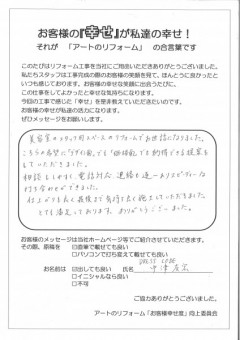 お客様の『幸せ』が私達の幸せ！
それが 「アートのリフォーム」 の合言葉です
このたびはリフォーム工事を当社にご用命いただきありがとうございました。
私たちスタッフは工事完成の際のお客様の笑顔を見て、ほんとうに良かったと
いつも感じております。お客様の幸せな笑顔に出会うたびに、
この仕事をしてよかったと幸せな気持ちになります。
今回の工事で感じた「幸せ」を是非教えていただきたいのです。
ぜひメッセージをお願いします。
美容室のスタッフ用スペースのリフォームでお世話になりました。
こちらの希望に「デザイン面」でも「価格面」でも納得できる提案を
していただきました。
相談もしやすく、電話対応、連絡も速くスピーディーな
打ち合わせができました。
仕上がりも良く最後まで責任を持ち施工していただきました。
とても満足しております。ありがとうございました。
お客様のメッセージは当社ホームページ等でご紹介させていただきます。
その際、原稿を ☑直筆で載せても良い
□パソコンで打ち変えて載せても良い
お名前は ☑出しても良い 氏名
□イニシャルなら良い
□不可
ご協力ありがとうございました。
アートのリフォーム「お客様幸せ度」向上委員会